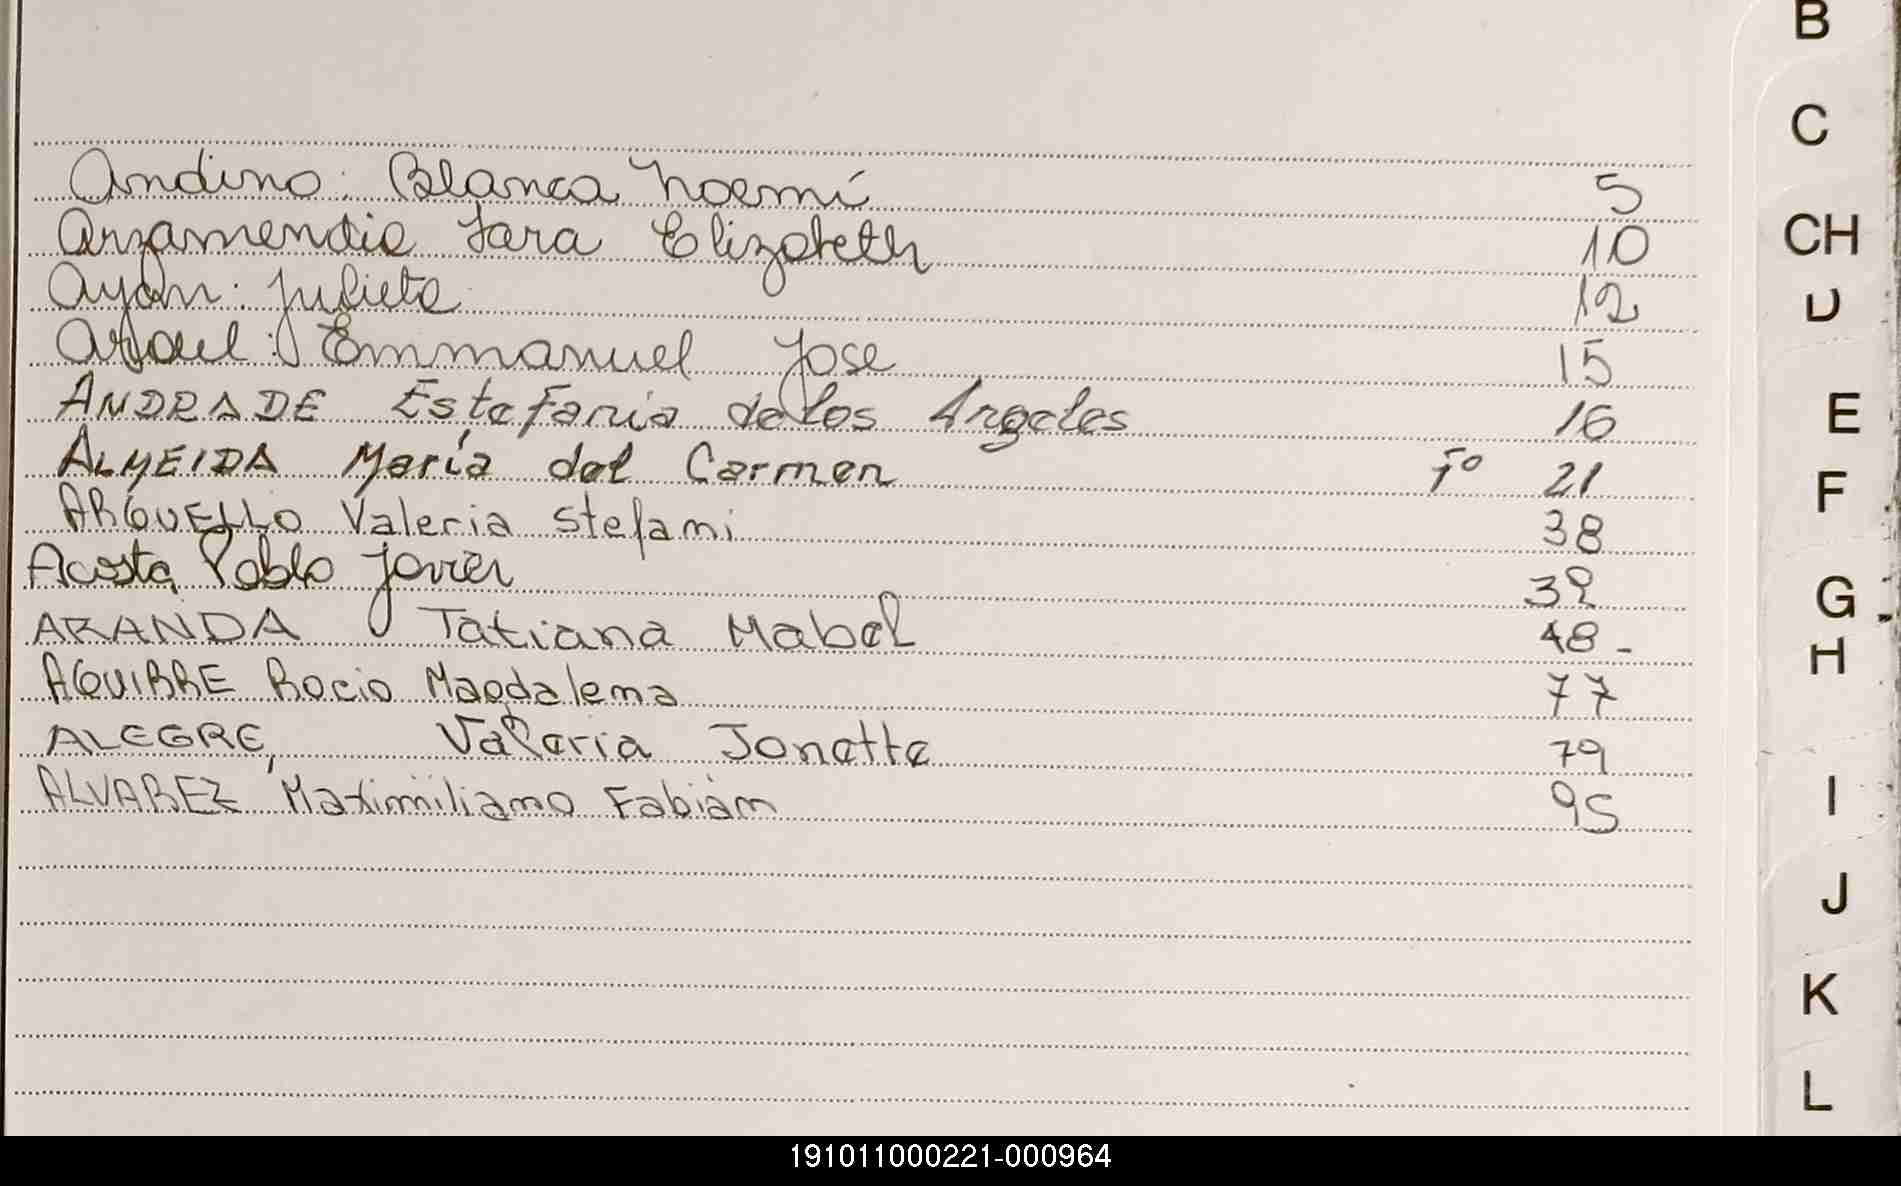 Andino: Blanca Noemí 5
Arzamendia Sara Elizabeth 10
Ayan: Julieta 12
Emmanuel Jose 15
ANDRADE Estefania de los Angeles 16
ALMEIDA María del Carmen Fº 21
ARGUELLO Valeria Stefani 38
Acosta, Pablo Javier 39
ARANDA Tatiana Mabel 48 -
AGUIRRE Rocio Magdalena 77
ALEGRE, Valeria Jonatte 79
ALVAREZ Maximiliano Fabián 95
B
C
CH
D
E
F
G
H
I
J
K
L
191011000221-000964